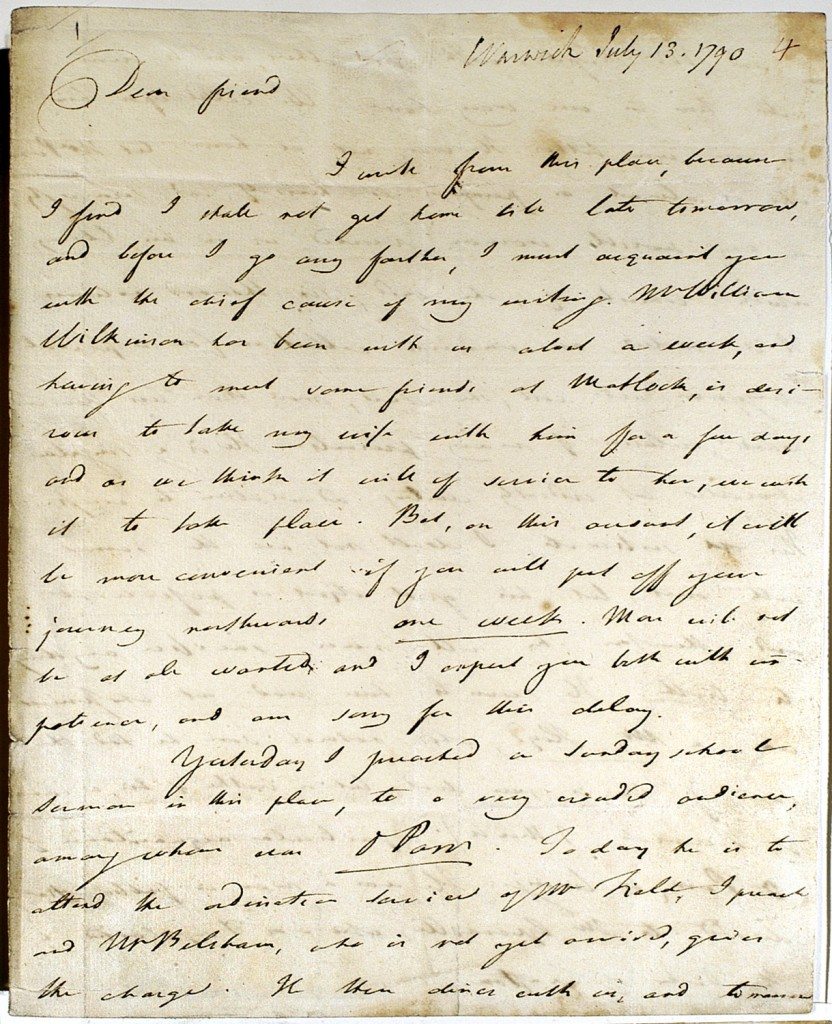 Warwick July 13. 1790 4
Dear friend
I write from this place, because
I find I shall not get home till late tomorrow,
and before I go any farther, I must acquaint you
with the chief cause of my writing. Mr William
Wilkinson has been with us about a week, and
having to meet some friends at Matlock, is desi-
rous to take my wife with him for a few days
and as we think it will of service to her, we wish
it to take place. But, on this account, it will
be more convenient if you will put off your
journey northwards one week. More will not
be at all wanted, and I expect you both with im-
patience, and am sorry for this delay.
Yesterday I preached a Sunday school
sermon in this place, to a very crouded audience,
among whom was D Parr. To day he is to
attend the ordination service of Mr Field, I preach
and Mr Belsham, who is not yet arrived, gives
the charge. He then dines with us, and tomorrow